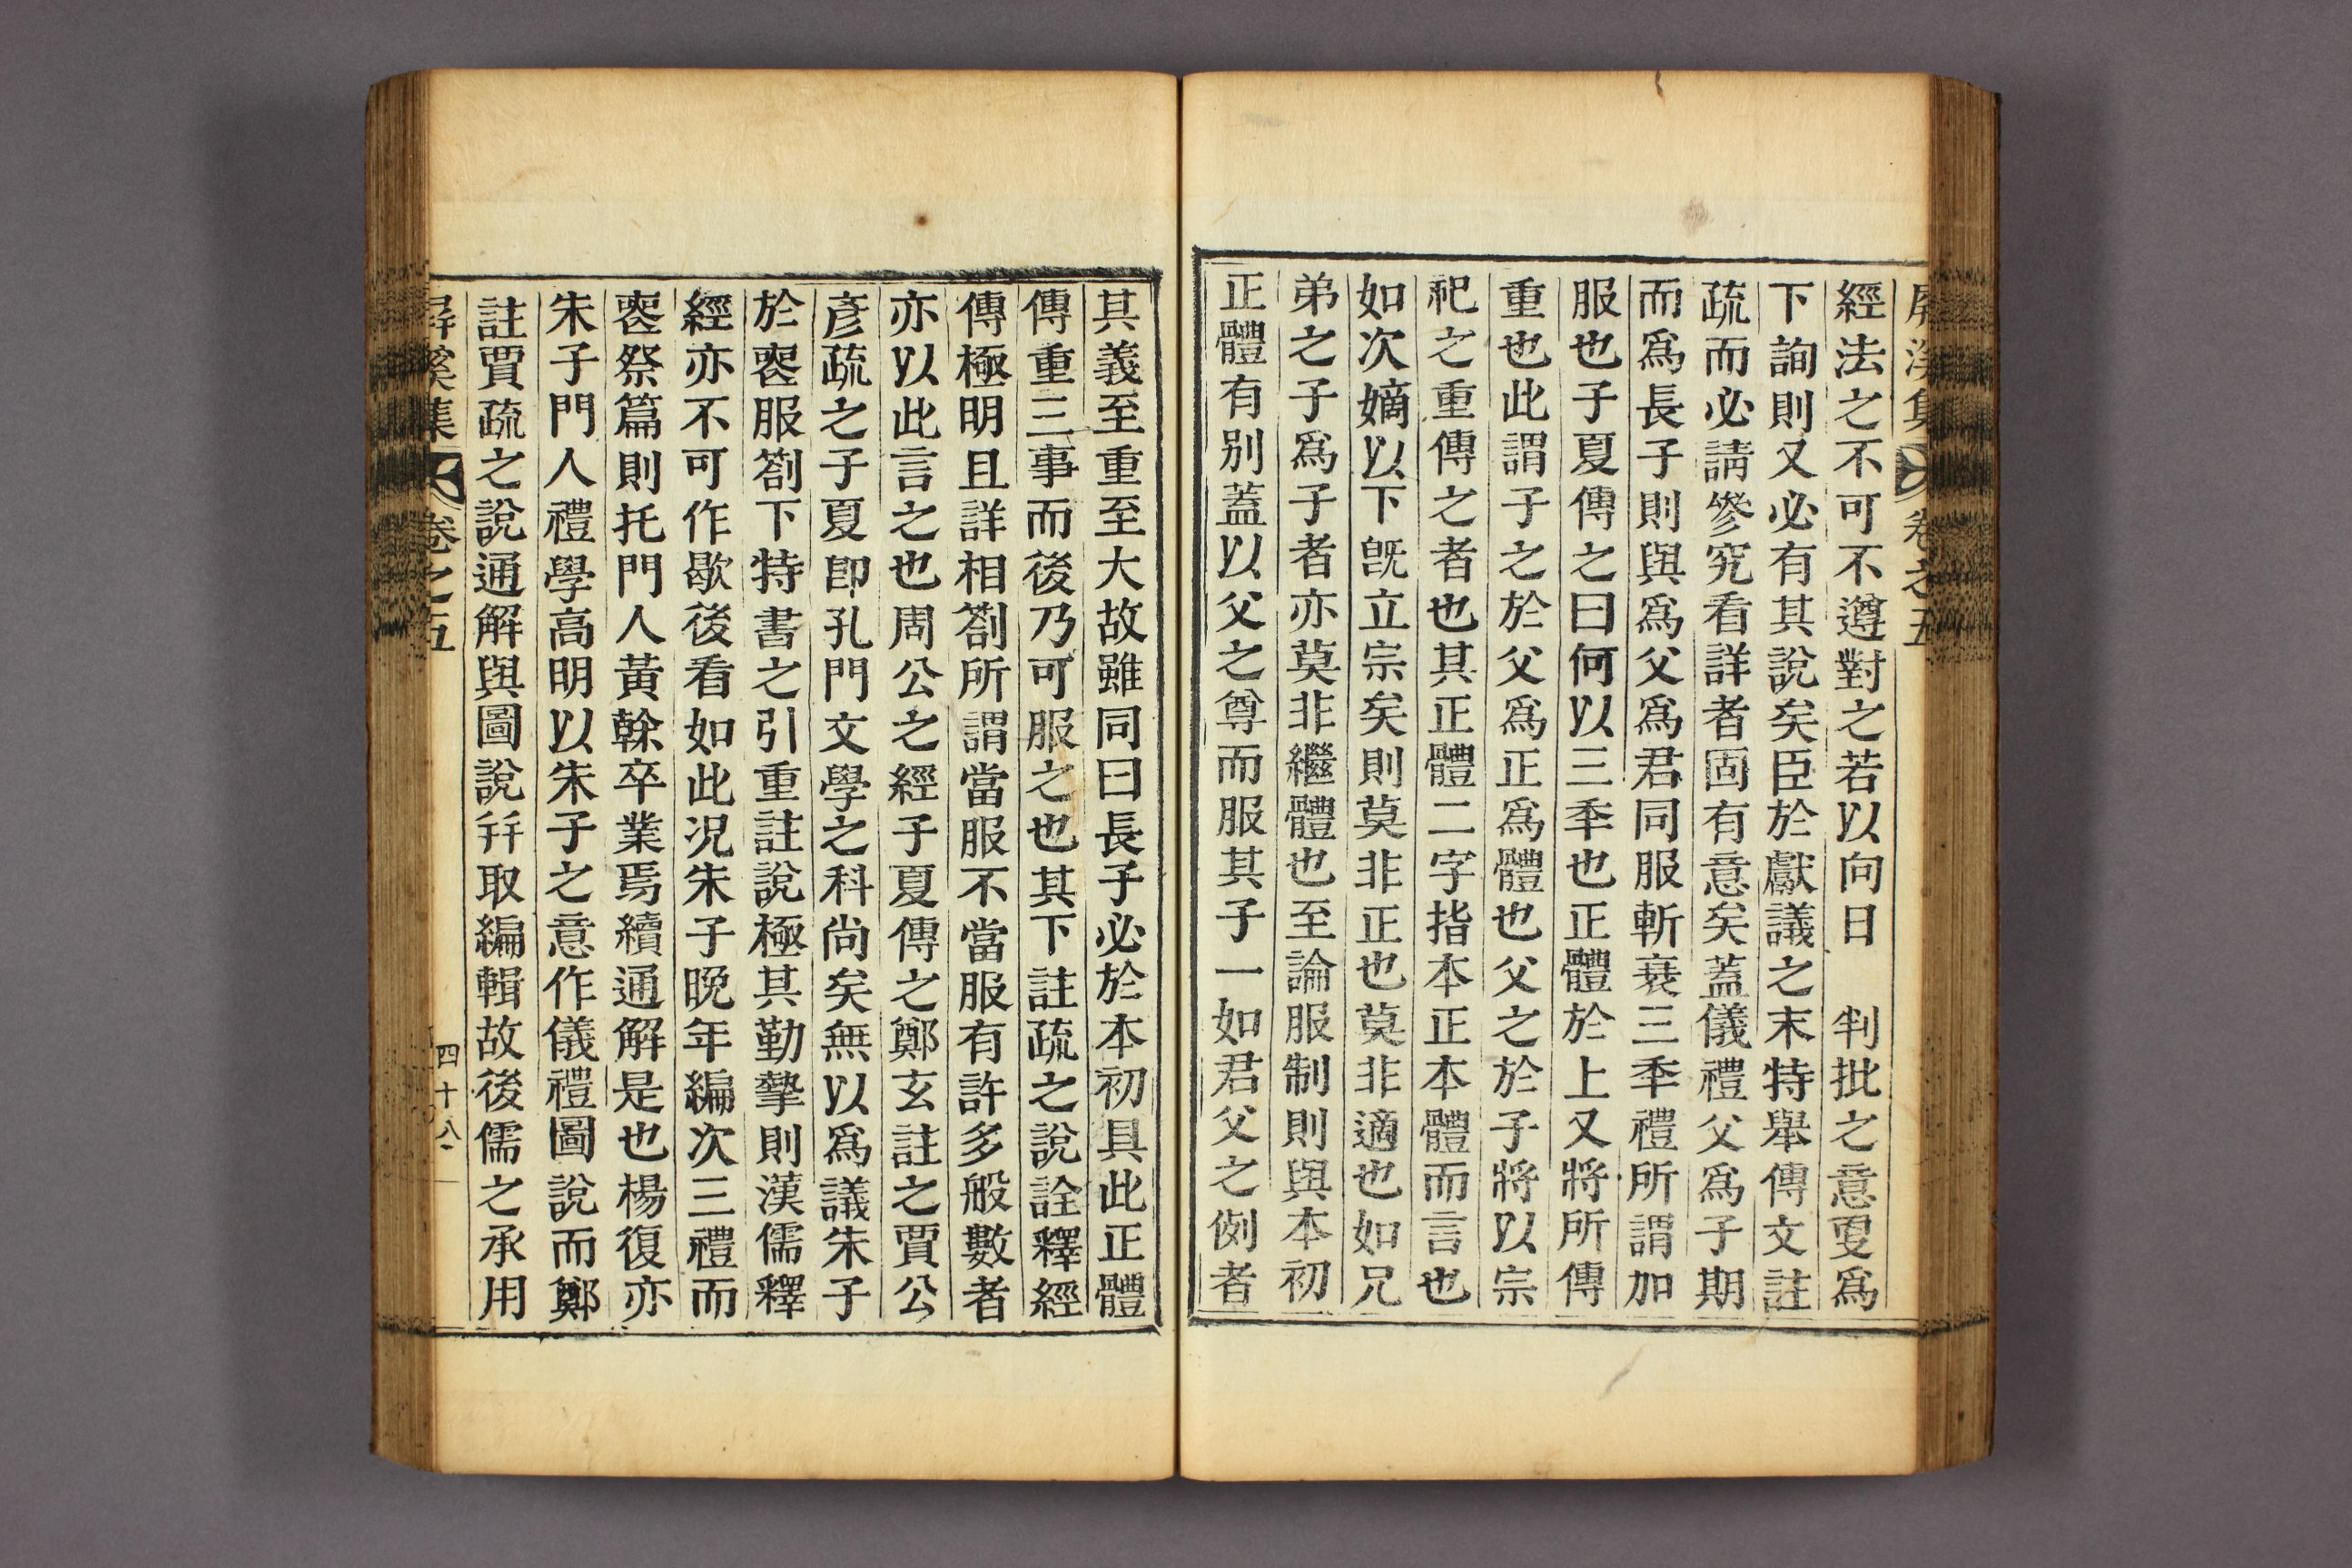 屛溪集 卷之五
經法之不可不遵對之若以向日 判批之意更爲
下詢則又必有其說矣臣於獻議之末特舉傳文註
疏而必請參究看詳者固有意矣蓋儀禮父爲子期
而爲長子則與爲父爲君同服斬衰三秊禮所謂加
服也子夏傳之曰何以三秊也正體於上又將所傳
重也此謂子之於父爲正爲體也父之於子將以宗
祀之重傳之者也其正體二字指本正本體而言也
如次嫡以下旣立宗矣則莫非正也莫非適也如兄
弟之子爲子者亦莫非繼體也至論服制則與本初
正體有別蓋以父之尊而服其子一如君父之例者
其義至重至大故雖同曰長子必於本初具此正體
傳重三事而後乃可服之也其下註疏之說詮釋經
傳極明且詳相劄所謂當服不當服有許多般數者
亦以此言之也周公之經子夏傳之鄭玄註之賈公
彦疏之子夏卽孔門文學之科尚矣無以爲議朱子
於喪服劄下特書之引重註說極其勤摯則漢儒釋
經亦不可作歇後看如此况朱子晩年編次三禮而
喪祭篇則托門人黃榦卒業焉續通解是也楊復亦
朱子門人禮學高明以朱子之意作儀禮圖說而鄭
註賈疏之說通解與圖說幷取編輯故後儒之承用
屛溪集 卷之五 四十八